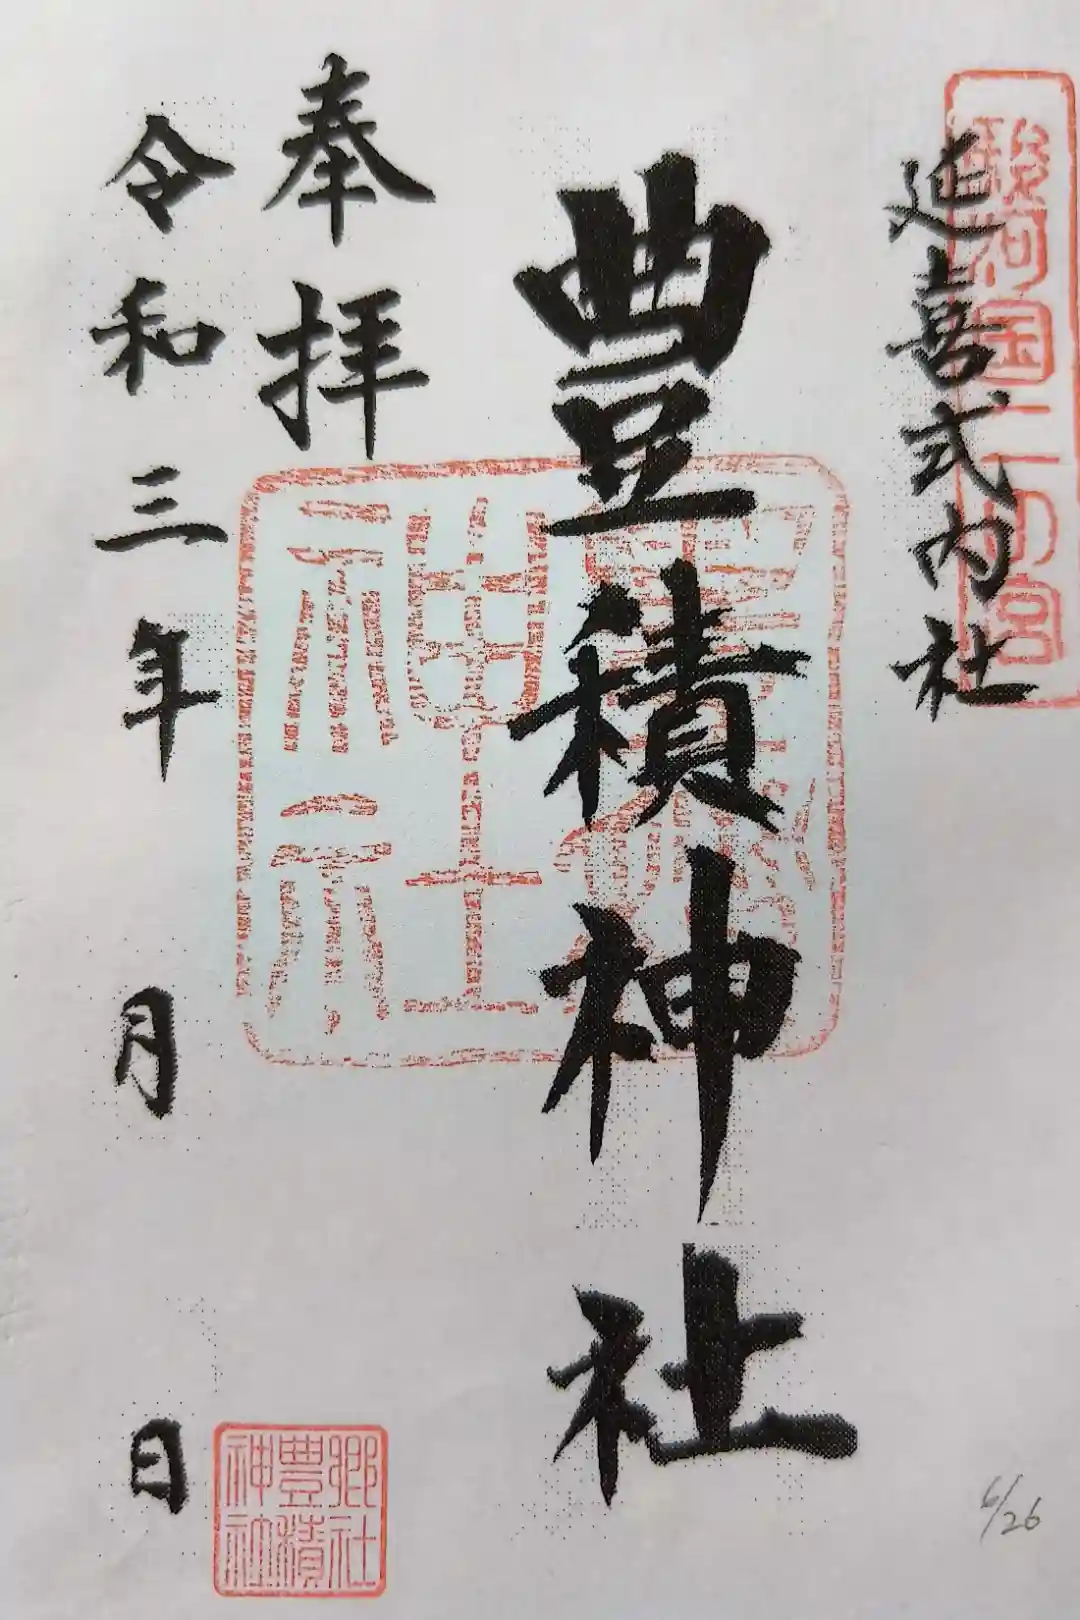 駿河国二の宮
延喜式内社
豊積神社
豊積神社
奉拝
令和三年 月 日
郷社
豊積
神社
6/26